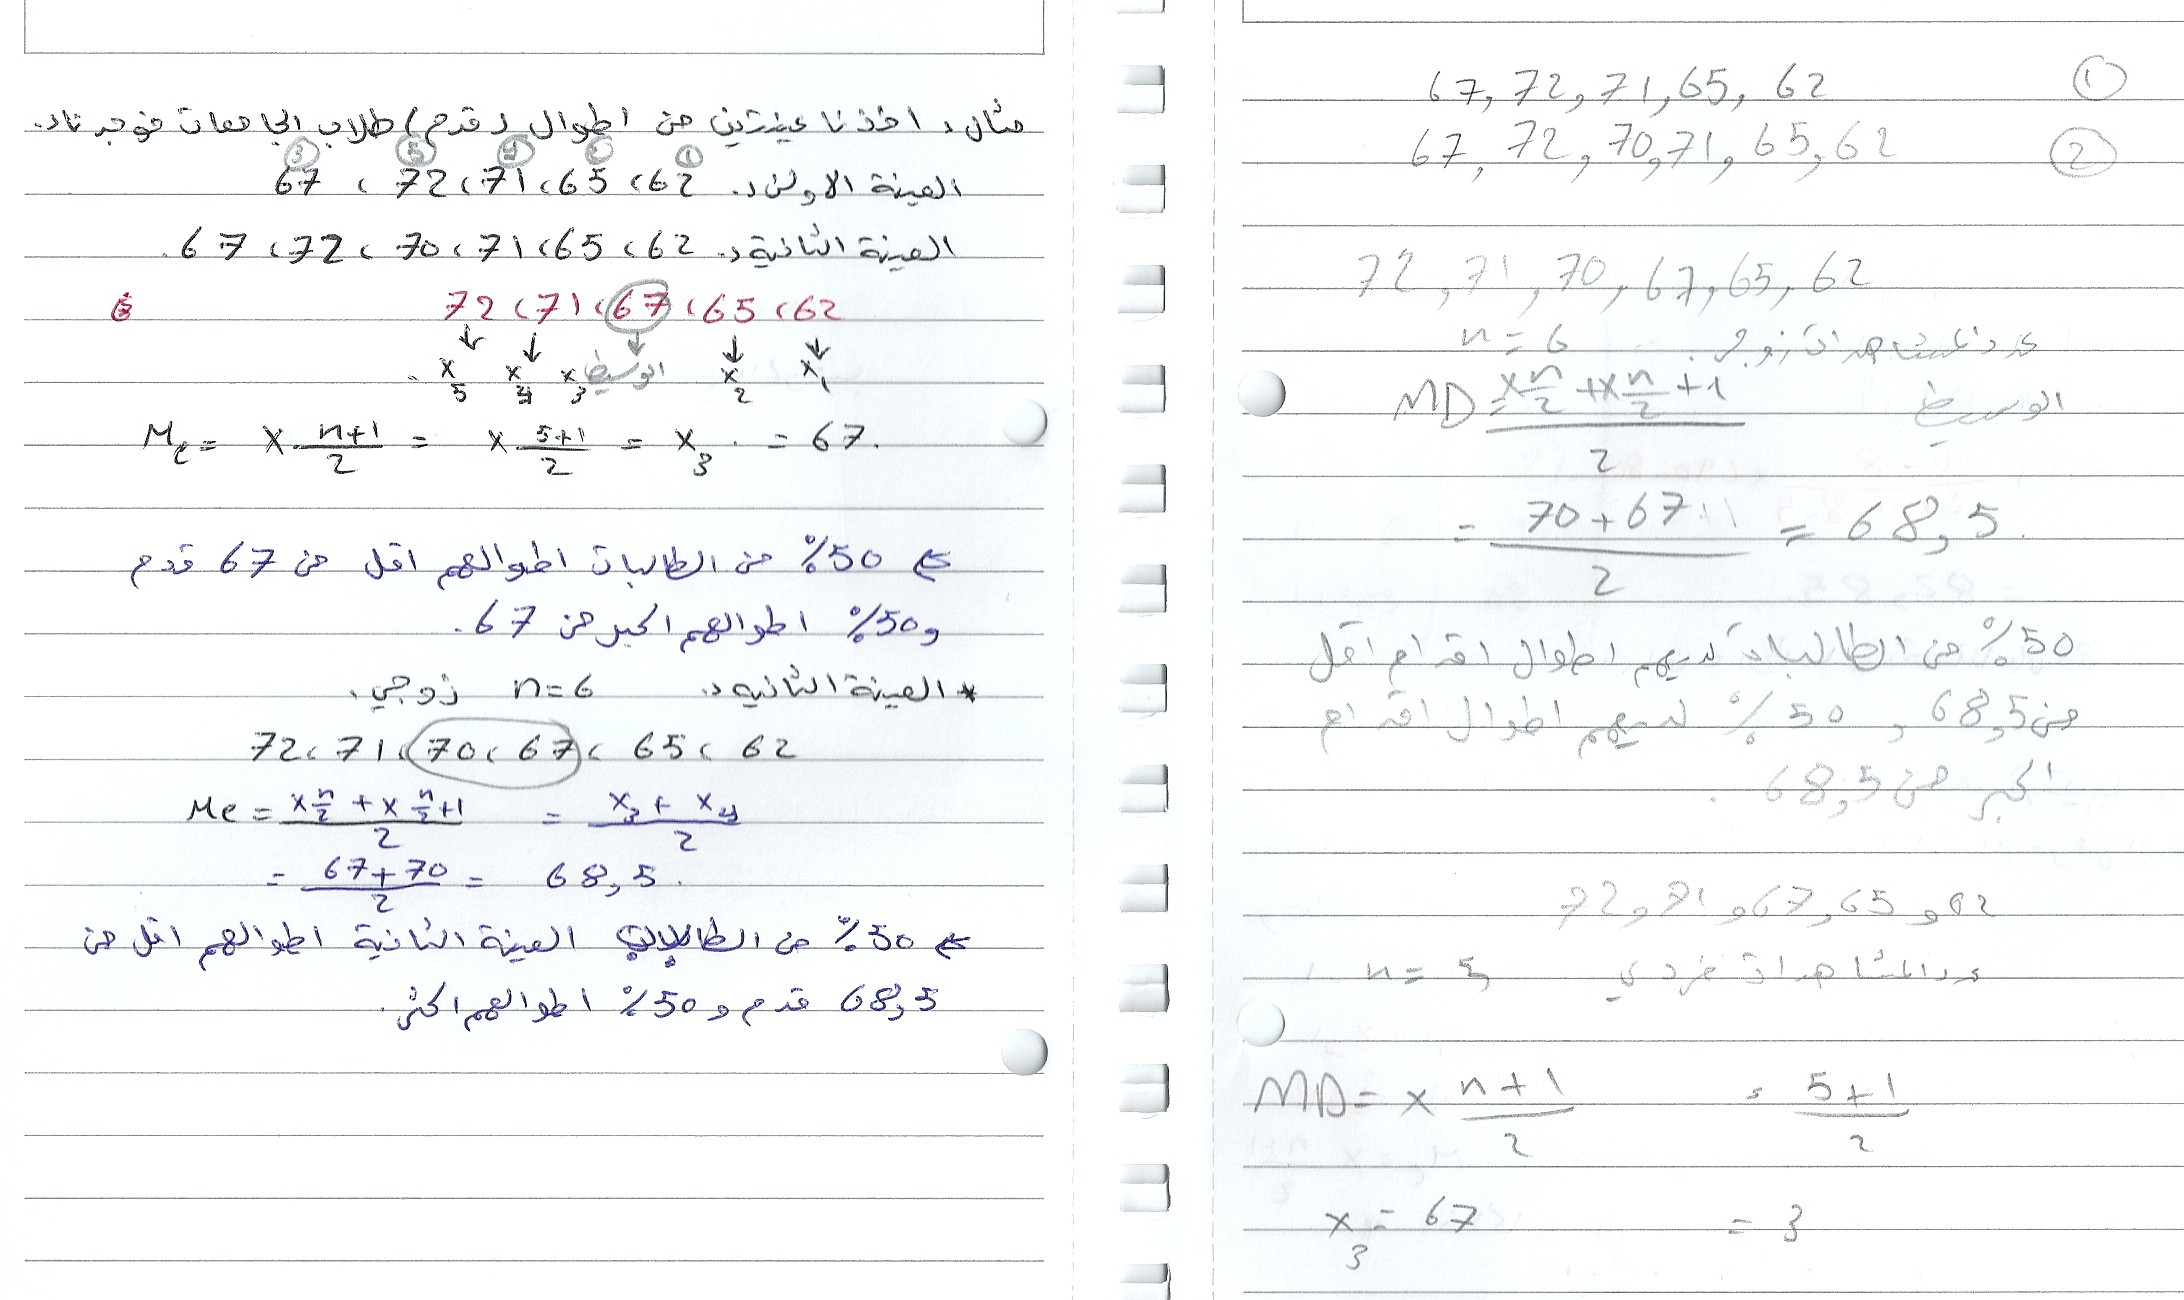 مثال: اخذنا عينتين من اطوال (قدم) طلاب الجامعات فوجدنا:
③ ⑤ ④ ② ①
العينة الاولى: 62، 65، 71، 72، 67
العينة الثانية: 62، 65، 71، 70، 72، 67.
62، 65، 67، 71، 72
x1 x2 الوسيط x3 x4 x5
Me = x (n+1)/2 = x (5+1)/2 = x3 = 67.
50% من الطالبات اطوالهم اقل من 67 قدم
و50% اطوالهم اكبر من 67.
* العينة الثانيه: n=6 زوجي.
62، 65، 67، 70، 72، 71
Me = (x n/2 + x n/2 +1)/2 = (x3 + x4)/2
= (67+70)/2 = 68,5.
50% من العينة الثانية اطوالهم اقل من
68,5 قدم و50% اطوالهم اكثر.
① 67, 72, 71, 65, 62
② 67, 72, 70, 71, 65, 62
72, 71, 70, 67, 65, 62
عدد المشاهدات زوجي. n=6
الوسيط MD = (x n/2 + x n/2 +1)/2
= (70+67+1)/2 = 68,5.
50% من الطالبات لديهم اطوال اقدام اقل
من 68,5 و 50% لديهم اطوال اقدام
اكبر من 68,5.
72, 71, 67, 65, 62
عدد المشاهدات فردي n = 5
MD = x (n+1)/2 = (5+1)/2
x3 = 67 = 3